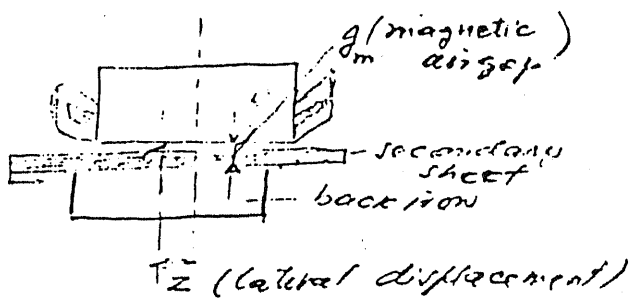 g_m (magnetic
airgap)
secondary
sheet
back iron
z (lateral displacement)